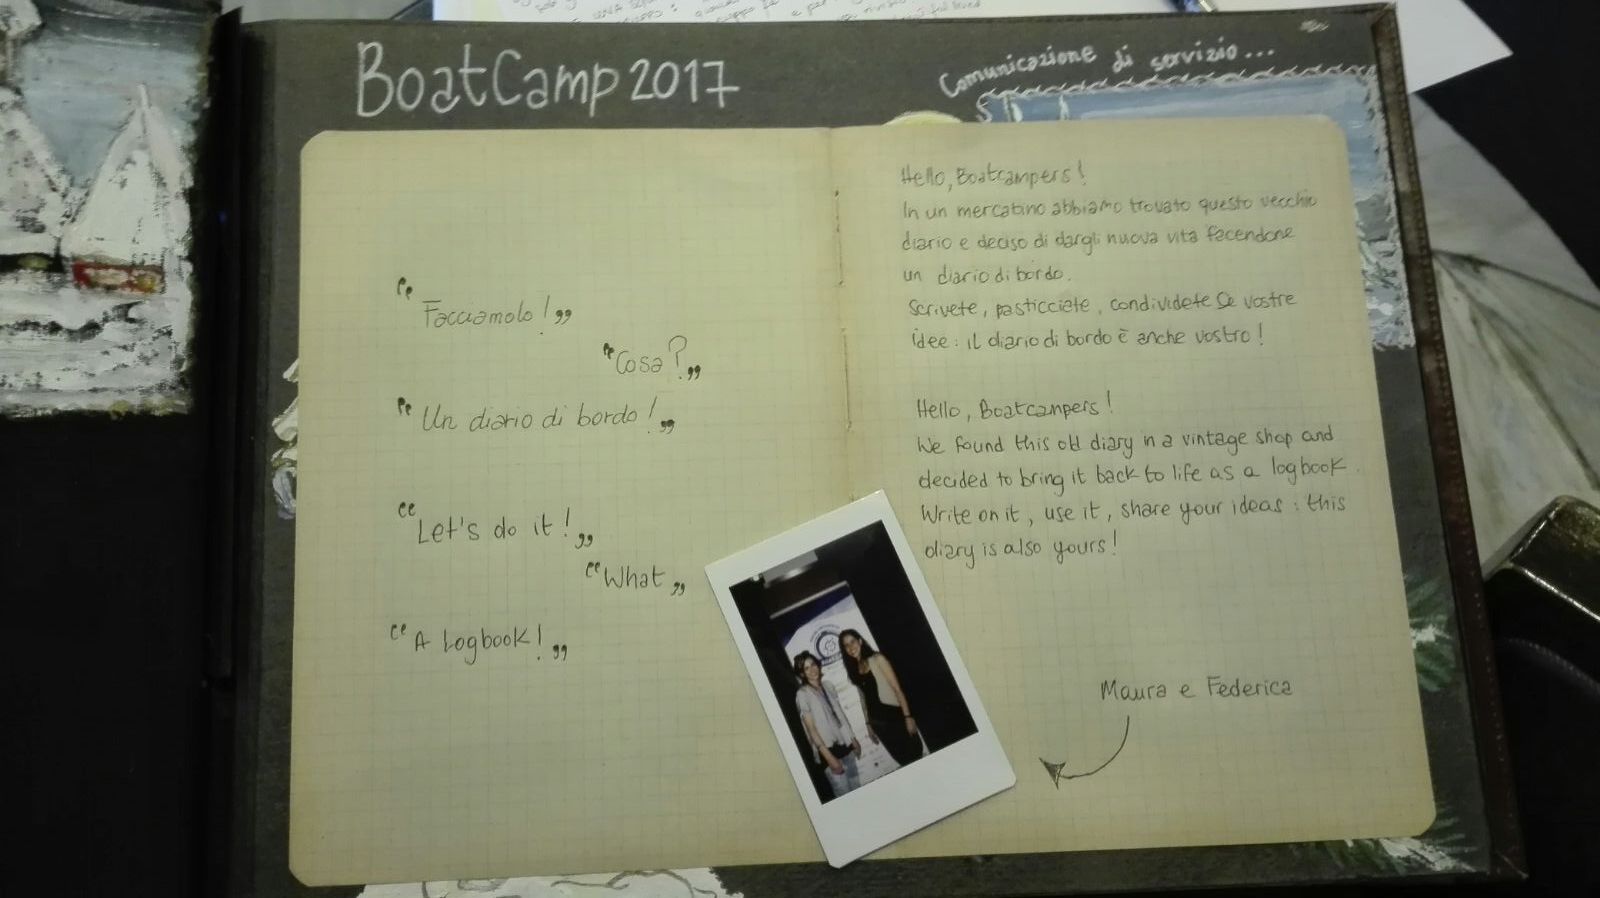 BoatCamp 2017
Comunicazione di servizio...
"Facciamolo!"
"Cosa?"
"Un diario di bordo!"
"Let's do it!"
"What"
"A logbook!"
Hello, Boatcampers!
In un mercatino abbiamo trovato questo vecchio
diario e deciso di dargli nuova vita facendone
un diario di bordo.
Scrivete, pasticciate, condividete le vostre
idee: il diario di bordo è anche vostro!
Hello, Boatcampers!
We found this old diary in a vintage shop and
decided to bring it back to life as a logbook.
Write on it, use it, share your ideas: this
diary is also yours!
Maura e Federica